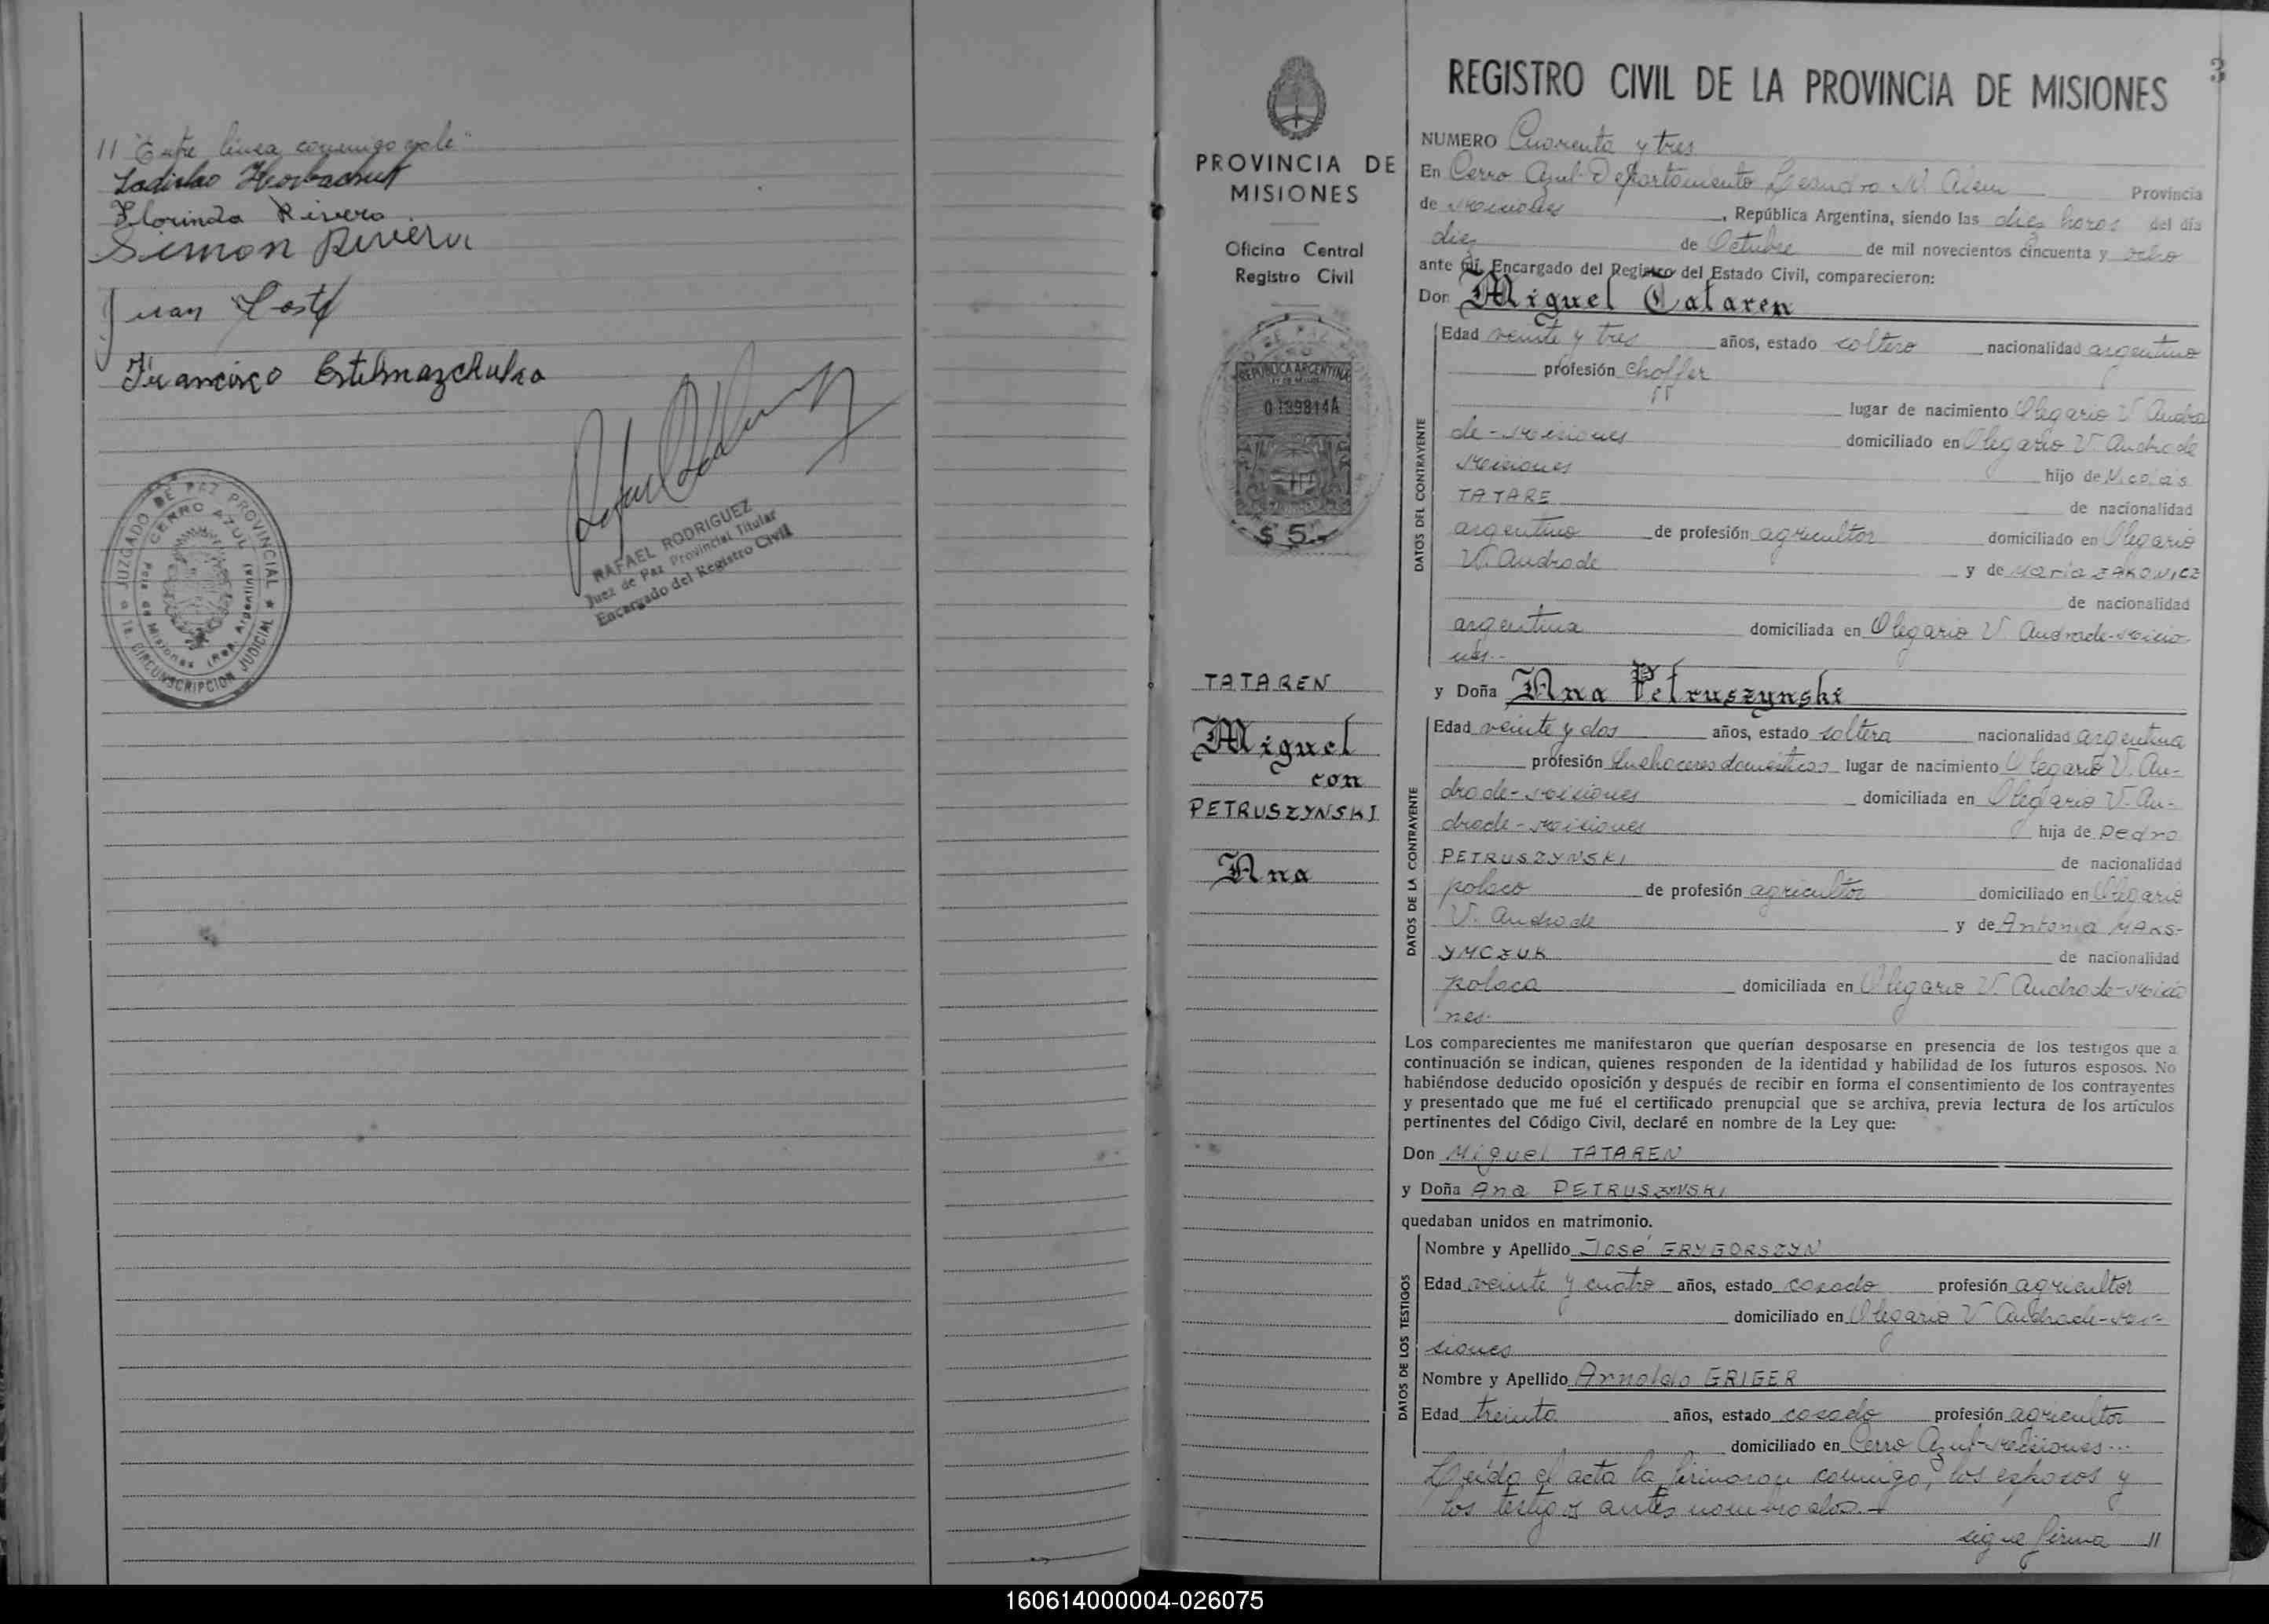 // "Entre línea conmigo vale"
Ladislao
Florinda Rivero
Simon Rivero
Juan
Francisco
RAFAEL RODRIGUEZ
Juez de Paz Provincial Titular
Encargado del Registro Civil
JUZGADO DE PAZ PROVINCIAL
CERRO AZUL
Pcia de Misiones (Rep. Argentina)
1a. CIRCUNSCRIPCION JUDICIAL
PROVINCIA DE
MISIONES
Oficina Central
Registro Civil
REPUBLICA ARGENTINA
0139814A
$ 5.-
TATAREN
Miguel
con
PETRUSZYNSKI
Ana
3
REGISTRO CIVIL DE LA PROVINCIA DE MISIONES
NUMERO Cuarenta y tres
En Cerro Azul-Departamento Leandro N. Alem Provincia
de Misiones, República Argentina, siendo las diez horas del día
diez de Octubre de mil novecientos cincuenta y ocho
ante mí, Encargado del Registro del Estado Civil, comparecieron:
Don Miguel Tataren
DATOS DEL CONTRAYENTE
Edad veinte y tres años, estado soltero nacionalidad argentino
profesión choffer
lugar de nacimiento Olegario V. Andra
de-Misiones domiciliado en Olegario V. Andrade
Misiones hijo de Nicolás
TATARE de nacionalidad
argentino de profesión agricultor domiciliado en Olegario
V. Andrade y de María ZAKOWICZ
de nacionalidad
argentina domiciliada en Olegario V. Andrade-Misio-
nes.-
y Doña Ana Petruszynski
DATOS DE LA CONTRAYENTE
Edad veinte y dos años, estado soltera nacionalidad argentina
profesión quehaceres domésticos lugar de nacimiento Olegario V. An-
drade-Misiones domiciliada en Olegario V. An-
drade-Misiones hija de Pedro
PETRUSZYNSKI de nacionalidad
polaco de profesión agricultor domiciliado en Olegario
V. Andrade y de Antonia MAKS-
YMCZUK de nacionalidad
polaca domiciliada en Olegario V. Andrade-Misio
nes.
Los comparecientes me manifestaron que querían desposarse en presencia de los testigos que a
continuación se indican, quienes responden de la identidad y habilidad de los futuros esposos. No
habiéndose deducido oposición y después de recibir en forma el consentimiento de los contrayentes
y presentado que me fué el certificado prenupcial que se archiva, previa lectura de los artículos
pertinentes del Código Civil, declaré en nombre de la Ley que:
Don Miguel TATAREN
y Doña Ana PETRUSZYNSKI
quedaban unidos en matrimonio.
DATOS DE LOS TESTIGOS
Nombre y Apellido José GRYGORSZYN
Edad veinte y cuatro años, estado casado profesión agricultor
domiciliado en Olegario V. Andrade-Mi-
siones
Nombre y Apellido Arnoldo GRIGER
Edad treinta años, estado casado profesión agricultor
domiciliado en Cerro Azul-Misiones...
Leída el acta la firmaron conmigo, los esposos y
los testigos antes nombrados.-
sigue firma //
160614000004-026075